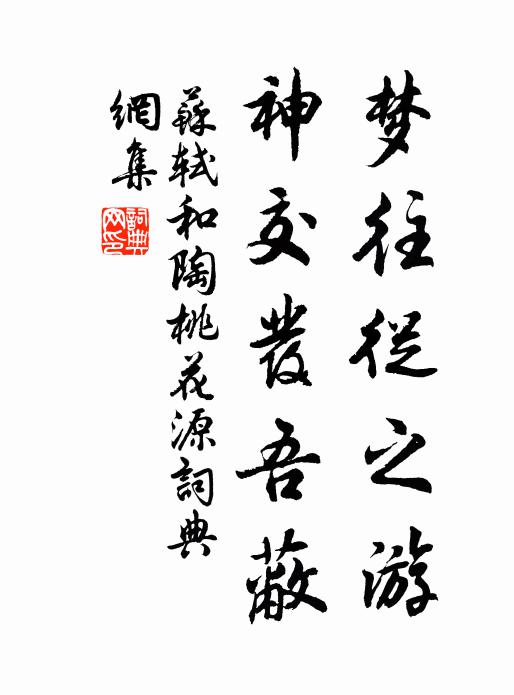 梦往從之游
神交發吾蔽
蘇軾和陶桃花源詞典
網集
詞典
网印